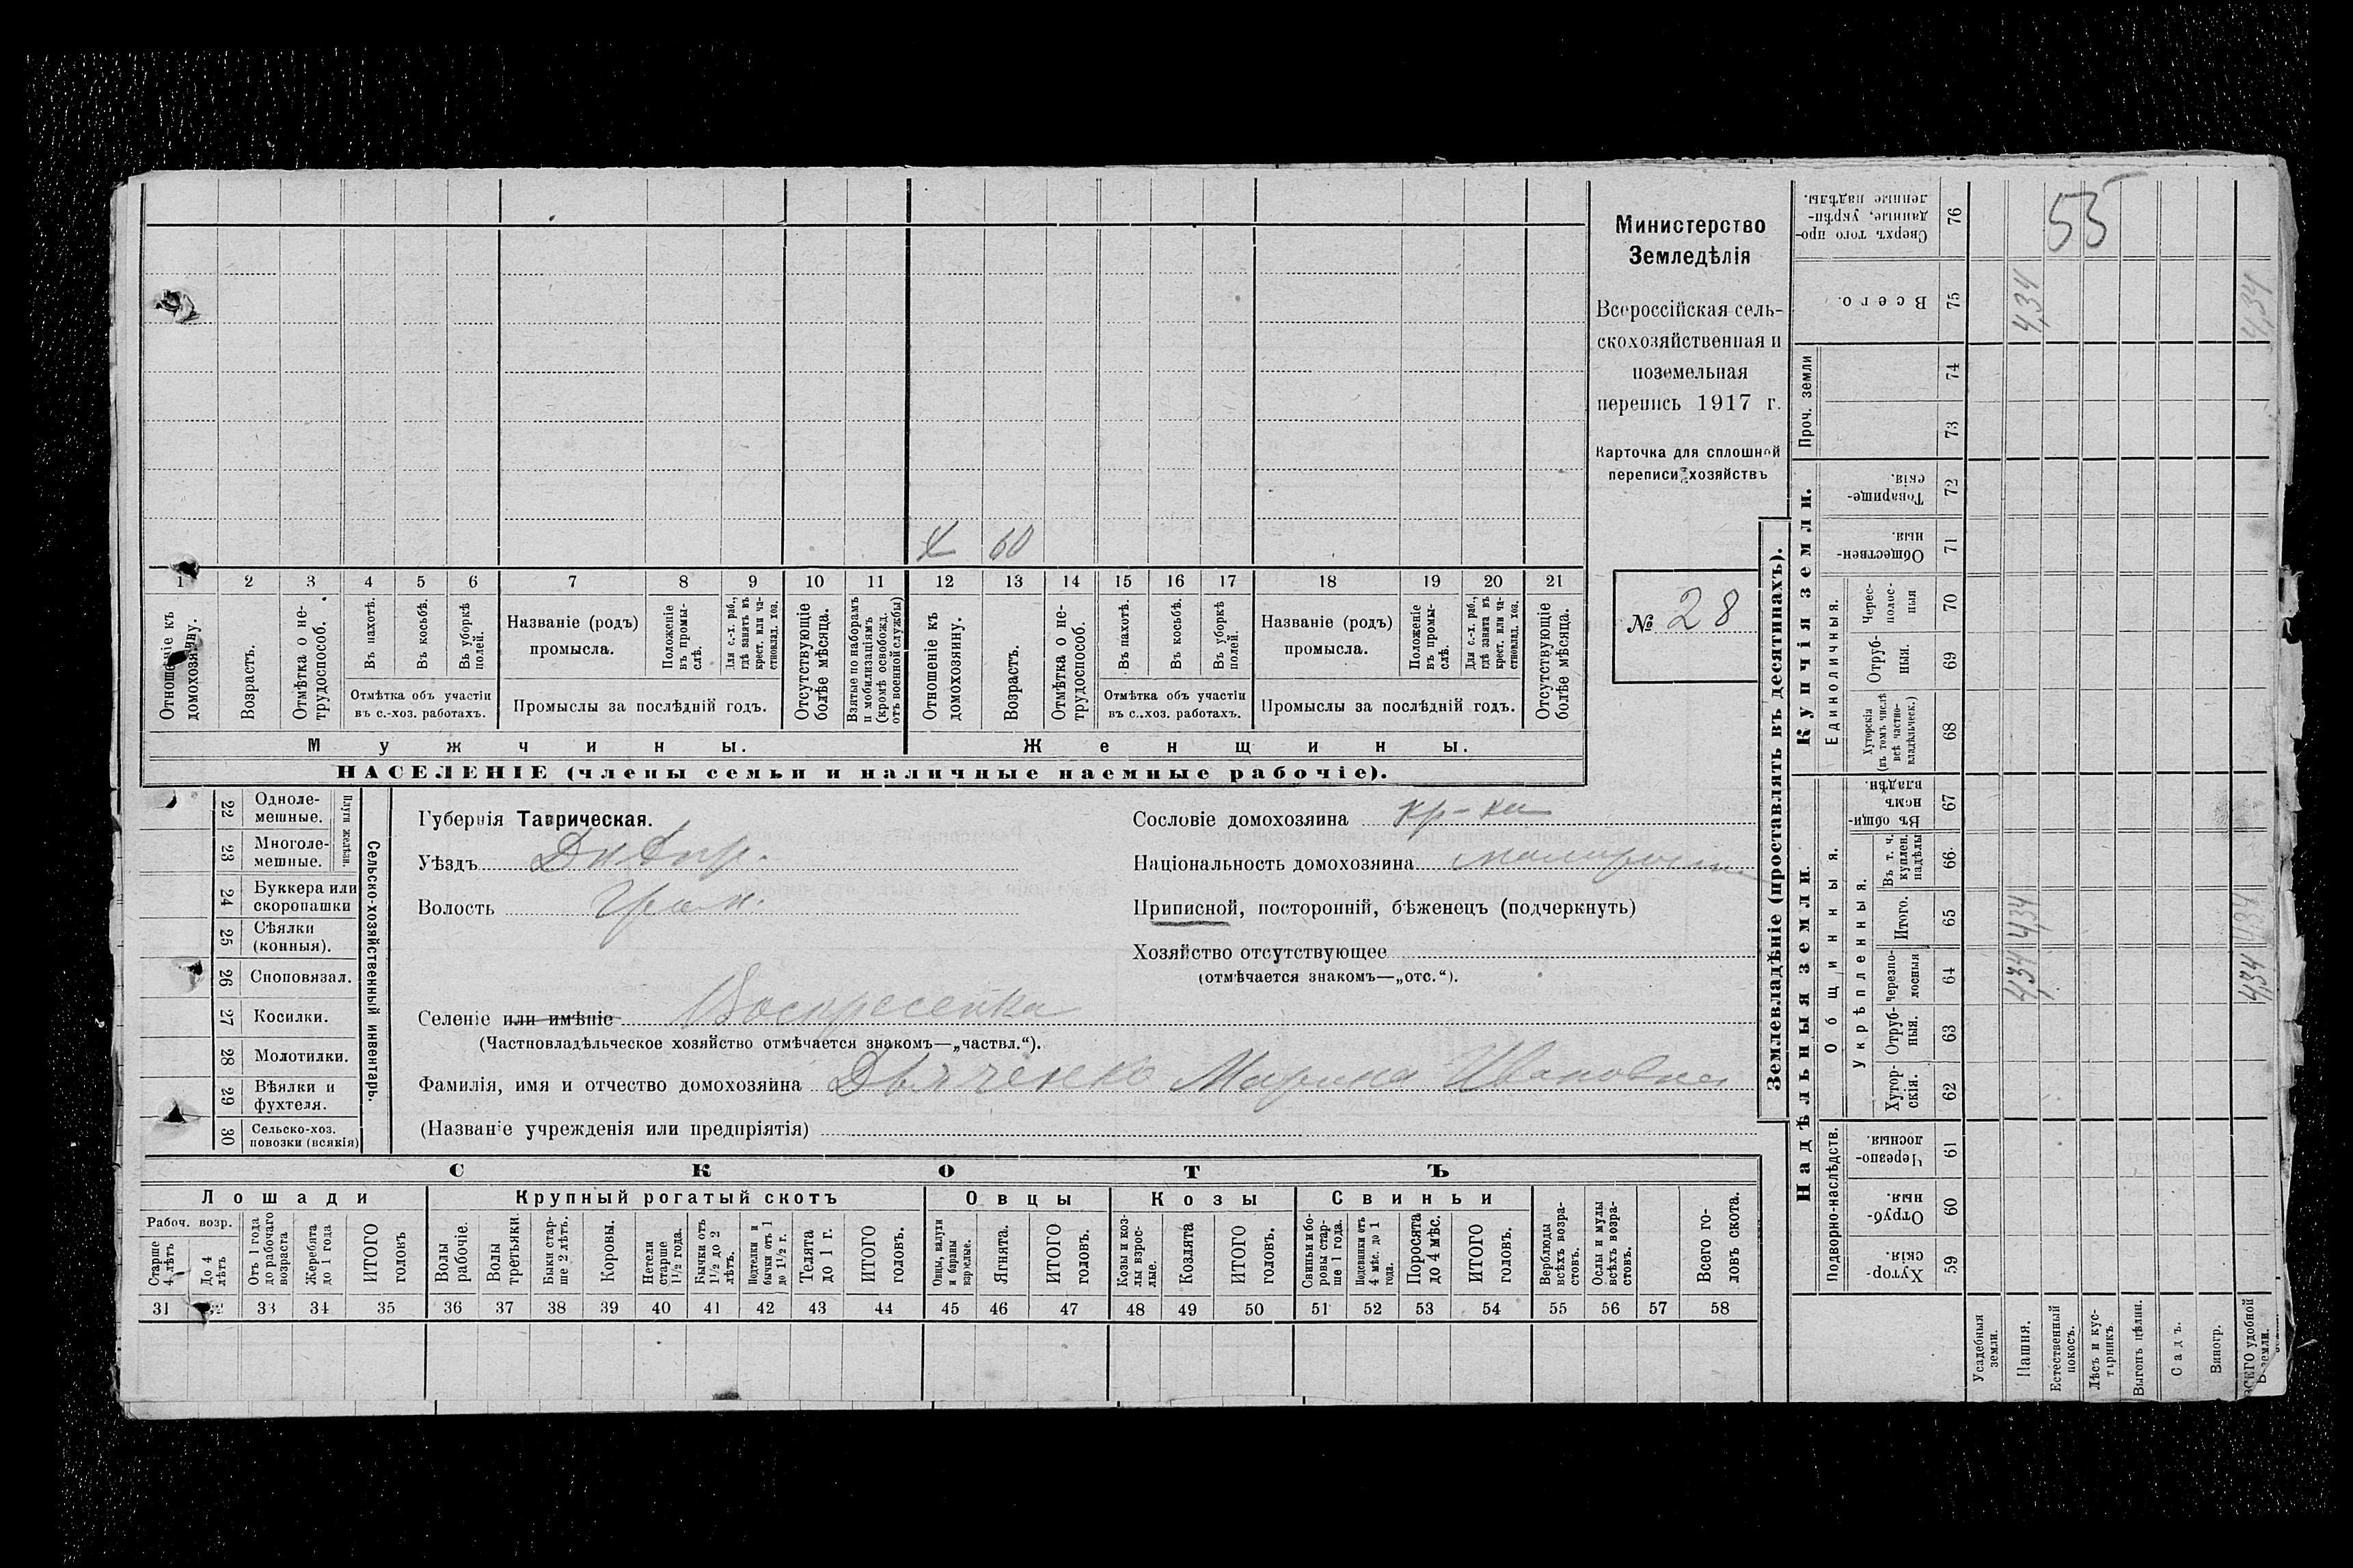 Министерство
Земледѣлія
Всероссійская сель-
скохозяйственная и
поземельная
перепись 1917 г.
Карточка для сплошной
переписи хозяйствъ
№ 28
Х 60
1 2 3 4 5 6 7 8 9 10 11 12 13 14 15 16 17 18 19 20 21
Отношеніе къ домохозяину.
Возрастъ.
Отмѣтка о не-трудоспособ.
Въ пахотѣ.
Въ косьбѣ.
Въ уборкѣ полей.
Отмѣтка объ участіи
въ с.-хоз. работахъ.
Названіе (родъ)
промысла.
Положеніе въ промы-слѣ.
Для с.-х. раб., гдѣ занятъ въ крест. или ча-стновлад. хоз.
Промыслы за послѣдній годъ.
Отсутствующіе болѣе мѣсяца.
Взятые по наборамъ и мобилизаціямъ (кромѣ освобожд. отъ военной службы)
Отношеніе къ домохозяину.
Возрастъ.
Отмѣтка о не-трудоспособ.
Въ пахотѣ.
Въ косьбѣ.
Въ уборкѣ полей.
Отмѣтка объ участіи
въ с.-хоз. работахъ.
Названіе (родъ)
промысла.
Положеніе въ промы-слѣ.
Для с.-х. раб., гдѣ занята въ крест. или ча-стновлад. хоз.
Промыслы за послѣдній годъ.
Отсутствующіе болѣе мѣсяца.
Мужчины. Женщины.
НАСЕЛЕНІЕ (члены семьи и наличные наемные рабочіе).
22 Одноле-мешные.
23 Многоле-мешные.
Плуги желѣзн.
24 Буккера или скоропашки
25 Сѣялки (конныя).
26 Сноповязал.
27 Косилки.
28 Молотилки.
29 Вѣялки и фухтеля.
30 Сельско-хоз. повозки (всякія)
Сельско-хозяйственный инвентарь.
Губернія Таврическая.
Уѣздъ Днѣпр.
Волость
Селеніе или имѣніе Воскресенка
(Частновладѣльческое хозяйство отмѣчается знакомъ—„частвл.“).
Фамилія, имя и отчество домохозяина Дьяченко Марина Ивановна
(Названіе учрежденія или предпріятія)
Сословіе домохозяина кр-ка
Національность домохозяина малоросс
Приписной, посторонній, бѣженецъ (подчеркнуть)
Хозяйство отсутствующее
(отмѣчается знакомъ—„отс.“).
СКОТЪ
Лошади Крупный рогатый скотъ Овцы Козы Свиньи
Рабоч. возр.
Старше 4 лѣтъ
До 4 лѣтъ
Отъ 1 года до рабочаго возраста
Жеребята до 1 года
ИТОГО головъ
Волы рабочіе.
Волы третьяки.
Быки стар-ше 2 лѣтъ.
Коровы.
Нетели старше 1½ года.
Бычки отъ 1½ до 2 лѣтъ.
Подтелки и бычки отъ 1 до 1½ г.
Телята до 1 г.
ИТОГО головъ.
Овцы, валухи и бараны взрослые.
Ягнята.
ИТОГО головъ.
Козы и коз-лы взрос-лые.
Козлята
ИТОГО головъ.
Свиньи и бо-ровы стар-ше 1 года.
Подсвинки отъ 4 мѣс. до 1 года.
Поросята до 4 мѣс.
ИТОГО головъ.
Верблюды всѣхъ возра-стовъ.
Ослы и мулы всѣхъ возра-стовъ.
Всего го-ловъ скота.
31 32 33 34 35 36 37 38 39 40 41 42 43 44 45 46 47 48 49 50 51 52 53 54 55 56 57 58
Землевладѣніе (проставлять въ десятинахъ).
Надѣльныя земли. Купчія земли. Проч. земли
Подворно-наслѣдств. Общинныя. Укрѣпленныя. Единоличныя.
Хутор-скія. 59
Отруб-ныя. 60
Черезпо-лосныя. 61
Хутор-скія. 62
Отруб-ныя. 63
Черезпо-лосныя 64
Итого. 65
Въ т. ч. куплен. надѣлы 66
Въ общи-номъ владѣн. 67
Хуторскія (въ томъ числѣ всѣ частно-владѣльческ.) 68
Отруб-ныя. 69
Черес-полос-ныя 70
Обществен-ныя. 71
Товарище-скія. 72
73
74
Всего. 75
Сверхъ того про-данные, укрѣп-ленные надѣлы. 76
Усадебныя земли.
Пашня. 4,34 4,34 4,34
Естественный покосъ.
Лѣсъ и кус-тарникъ.
Выгонъ цѣлин.
Садъ.
Виногр.
ВСЕГО удобной земли. 4,34 4,34 4,34
55